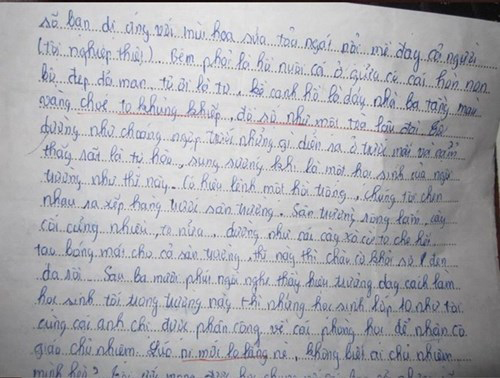 số bạn dị ứng với mùi hoa sữa toả ngát nổi mề đay cả người
(tội nghiệp thiệt). Bên phải là hồ nuôi cá ở giữa có cái hòn non
bộ, đẹp dã man, to ơi là to, kế cạnh hồ là dãy nhà ba tầng màu
vàng chué to khủng khiếp, đồ sộ như một toà lâu đài
dường như choáng ngợp trước những gì diễn ra ở trước mắt và cảm
thấy rất là tự hào, sung sướng khi là một học sinh của ngôi
trường như thế này. Có hiệu lệnh một hồi trống, chúng tôi chen
nhau ra xếp hàng trước sân trường. Sân trường rộng lắm, cây
cối cũng nhiều, to nữa, dường như cái cây xà cừ to che hết
tạo bóng mát cho cả sân trường, thế này thì chào cờ khỏi sợ đen
da rồi. Sau ba mươi phút ngồi nghe thầy hiệu trưởng dạy cách làm
học sinh tốt trong trường này thì những học sinh lớp 10 như tôi
cùng các anh chị được phân công về các phòng học để nhận cô
giáo chủ nhiệm. Lúc ni mới lo lắng nè, không biết ai chủ nhiệm
mình hè?